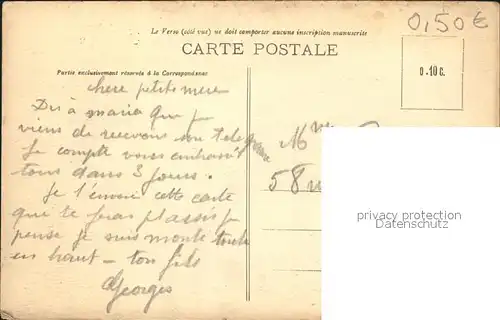 0,50€
Le Verso (côté vue) ne doit comporter aucune inscription manuscrite
CARTE POSTALE
Partie exclusivement réservée à la Correspondance
0.10 c.
chere petite mere
Dis à maria que je
viens de recevoir son telegramme
Je compte vous embrasser
tous dans 3 jours.
Je t'envoie cette carte
qui te fera plaisir je
pense je suis monté toute
en haut – ton fils
Georges
Mme
58
privacy protection
Datenschutz